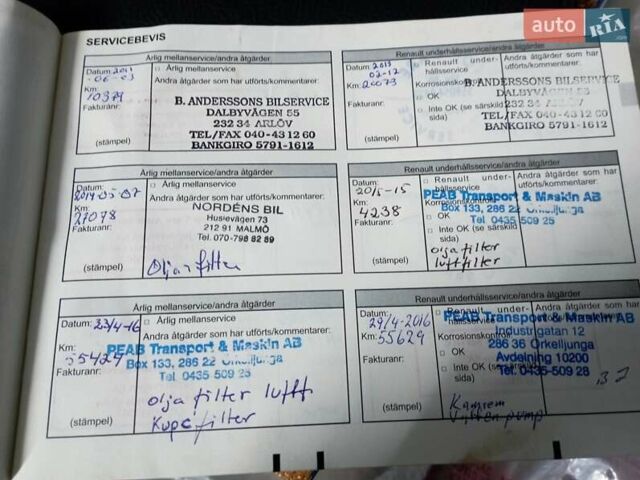 auto RIA.com
SERVICEBEVIS
Årlig mellanservice/andra åtgärder
Datum:
□ Årlig mellanservice
Andra åtgärder som har utförts/kommentarer:
Km: 10379
Fakturanr:
B. ANDERSSONS BILSERVICE
DALBYVÄGEN 55
232 34 ARLÖV
TEL/FAX 040-43 12 60
BANKGIRO 5791-1612
(stämpel)
Renault underhållsservice/andra åtgärder
Datum: 2013
02-12
□ Renault underhållsservice
Andra åtgärder som har utförts/kommentarer:
Km: 20073
Korrosionskontroll
Fakturanr:
□ OK
□ Inte OK (se särskild sida)
B. ANDERSSONS BILSERVICE
DALBYVÄGEN 55
232 34 ARLÖV
TEL/FAX 040-43 12 60
BANKGIRO 5791-1612
(stämpel)
Årlig mellanservice/andra åtgärder
Datum:
□ Årlig mellanservice
Andra åtgärder som har utförts/kommentarer:
Km:
Fakturanr:
NORDÉNS BIL
Husievägen 73
212 91 MALMÖ
Tel. 070-798 82 89
(stämpel)
filter
Renault underhållsservice/andra åtgärder
Datum:
□ Renault underhållsservice
Andra åtgärder som har
Km: 4238
Korrosionskontroll
Fakturanr:
□ OK
□ Inte OK (se särskild sida)
PEAB Transport & Maskin AB
Box 133, 286 22 Örkelljunga
Tel 0435-509 25
olja filter
luftfilter
(stämpel)
Årlig mellanservice/andra åtgärder
Datum: 23/4-16
□ Årlig mellanservice
Andra åtgärder som har utförts/kommentarer:
Km: 55424
Fakturanr:
PEAB Transport & Maskin AB
Box 133, 286 22 Örkelljunga
Tel 0435-509 25
olja filter luft
Kupé filter
(stämpel)
Renault underhållsservice/andra åtgärder
Datum: 29/4-2016
□ Renault underhållsservice
Andra åtgärder som har
Km: 55629
Korrosionskontroll
Fakturanr:
□ OK
□ Inte OK (se särskild sida)
PEAB Transport & Maskin AB
Industrigatan 12
286 36 Örkelljunga
Avdelning 10200
Tel. 0435-509 28
Kamrem
Vattenpump
(stämpel)